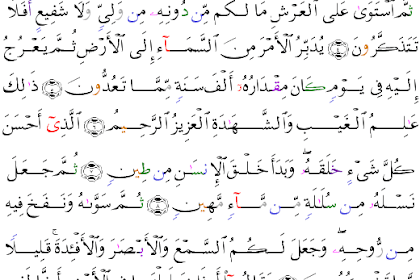 ثُمَّ ٱسْتَوَىٰ عَلَى ٱلْعَرْشِ مَا لَكُم مِّن دُونِهِۦ مِن وَلِىٍّ وَلَا شَفِيعٍ أَفَلَا
تَتَذَكَّرُونَ ٤ يُدَبِّرُ ٱلْأَمْرَ مِنَ ٱلسَّمَآءِ إِلَى ٱلْأَرْضِ ثُمَّ يَعْرُجُ
إِلَيْهِ فِى يَوْمٍ كَانَ مِقْدَارُهُۥٓ أَلْفَ سَنَةٍ مِّمَّا تَعُدُّونَ ٥ ذَٰلِكَ
عَٰلِمُ ٱلْغَيْبِ وَٱلشَّهَٰدَةِ ٱلْعَزِيزُ ٱلرَّحِيمُ ٦ ٱلَّذِىٓ أَحْسَنَ
كُلَّ شَىْءٍ خَلَقَهُۥ وَبَدَأَ خَلْقَ ٱلْإِنسَٰنِ مِن طِينٍ ٧ ثُمَّ جَعَلَ
نَسْلَهُۥ مِن سُلَٰلَةٍ مِّن مَّآءٍ مَّهِينٍ ٨ ثُمَّ سَوَّىٰهُ وَنَفَخَ فِيهِ
مِن رُّوحِهِۦ وَجَعَلَ لَكُمُ ٱلسَّمْعَ وَٱلْأَبْصَٰرَ وَٱلْأَفْـِٔدَةَ قَلِيلًا